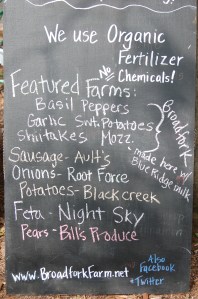 We use Organic
Fertilizer
No Chemicals!
Featured Farms:
Basil Peppers
Garlic Swt. Potatoes
Shiitakes Mozz.
Broadfork
made here w/
Blue Ridge milk
Sausage - Ault's
Onions - Root Force
Potatoes - Black creek
Feta - Night Sky
Pears - Bill's Produce
Also
Facebook
+ Twitter
www.BroadforkFarm.net